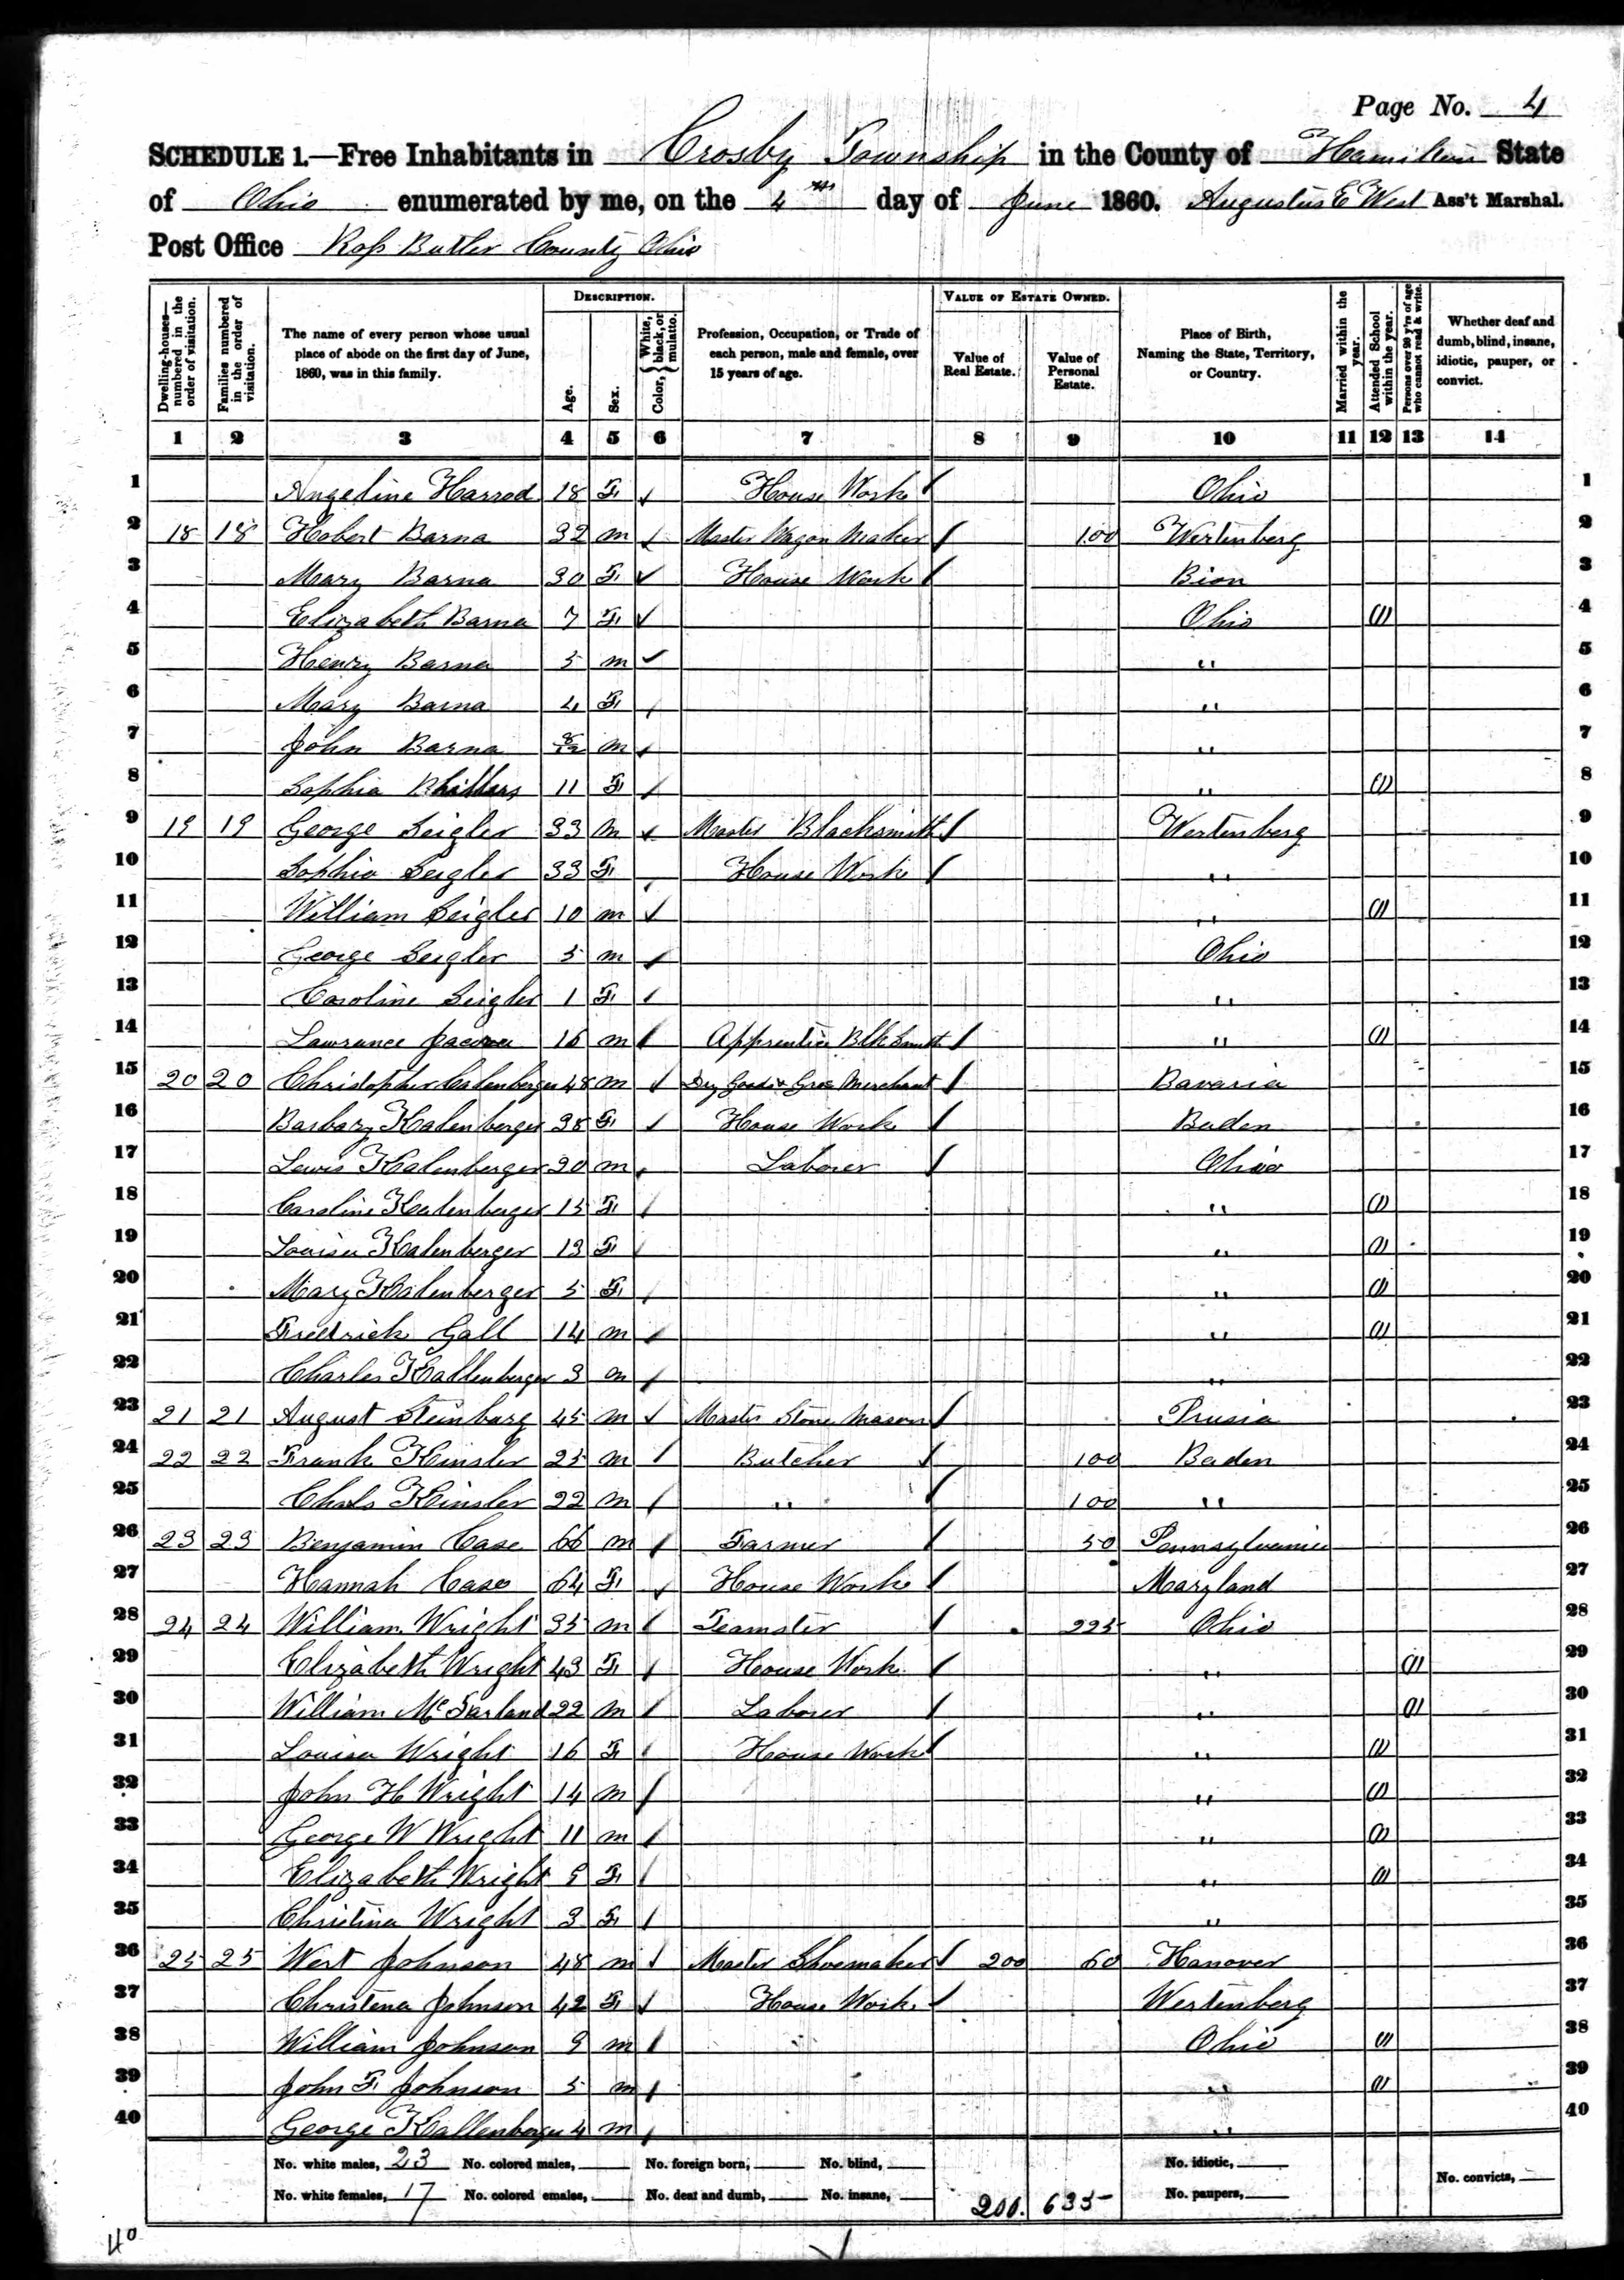 Page No. 4
SCHEDULE 1.—Free Inhabitants in Crosby Township in the County of Hamilton State
of Ohio enumerated by me, on the 4th day of June 1860. Augustus E West Ass't Marshal.
Post Office Ross Butler County Ohio
Dwelling-houses—numbered in the order of visitation.
Families numbered in the order of visitation.
The name of every person whose usual place of abode on the first day of June, 1860, was in this family.
DESCRIPTION.
Age.
Sex.
Color, { White, black, or mulatto.
Profession, Occupation, or Trade of each person, male and female, over 15 years of age.
VALUE OF ESTATE OWNED.
Value of Real Estate.
Value of Personal Estate.
Place of Birth, Naming the State, Territory, or Country.
Married within the year.
Attended School within the year.
Persons over 20 y'rs of age who cannot read & write.
Whether deaf and dumb, blind, insane, idiotic, pauper, or convict.
1 2 3 4 5 6 7 8 9 10 11 12 13 14
1 Angeline Harrod 18 F House Work Ohio 1
2 18 18 Hobert Barna 32 m Master Wagon Maker 100 Wertenberg 2
3 Mary Barna 30 F House Work Bion 3
4 Elizabeth Barna 7 F Ohio (1) 4
5 Henry Barna 5 m " 5
6 Mary Barna 4 F " 6
7 John Barna 8/12 m " 7
8 Sophia 11 F " (1) 8
9 19 19 George Seigler 33 m Master Blacksmith Wertenberg 9
10 Sophia Seigler 33 F House Work " 10
11 William Seigler 10 m " (1) 11
12 George Seigler 5 m Ohio 12
13 Caroline Seigler 1 F " 13
14 Lawrance 16 m Apprentice Blk Smith " (1) 14
15 20 20 Christopher Calenberger 48 m Dry Goods & Groc Merchant Bavaria 15
16 Barbary Kalenberger 38 F House Work Baden 16
17 Lewis Kalenberger 20 m Laborer Ohio 17
18 Caroline Kalenberger 15 F " (1) 18
19 Louisa Kalenberger 13 F " (1) 19
20 Mary Kalenberger 5 F " (1) 20
21 Fredrick Gall 14 m " (1) 21
22 Charles Kallenberger 3 m " 22
23 21 21 August Steinburg 45 m Master Stone Mason Prusia 23
24 22 22 Frank Kinsler 25 m Butcher 100 Baden 24
25 Chals Kinsler 22 m " 100 " 25
26 23 23 Benjamin Case 66 m Farmer 50 Pennsylvania 26
27 Hannah Case 64 F House Work Maryland 27
28 24 24 William Wright 35 m Teamster 225 Ohio 28
29 Elizabeth Wright 43 F House Work " (1) 29
30 William McFarland 22 m Laborer " (1) 30
31 Louisa Wright 16 F House Work " (1) 31
32 John H Wright 14 m " (1) 32
33 George W Wright 11 m " (1) 33
34 Elizabeth Wright 9 F " (1) 34
35 Christina Wright 3 F " 35
36 25 25 Wert Johnson 48 m Master Shoemaker 200 60 Hanover 36
37 Christena Johnson 42 F House Work Wertenberg 37
38 William Johnson 9 m Ohio (1) 38
39 John F Johnson 5 m " (1) 39
40 George Kallenberger 4 m " 40
No. white males, 23 No. colored males, No. foreign born, No. blind, No. idiotic,
No. white females, 17 No. colored emales, No. deaf and dumb, No. insane, 200. 635 No. paupers, No. convicts,
40